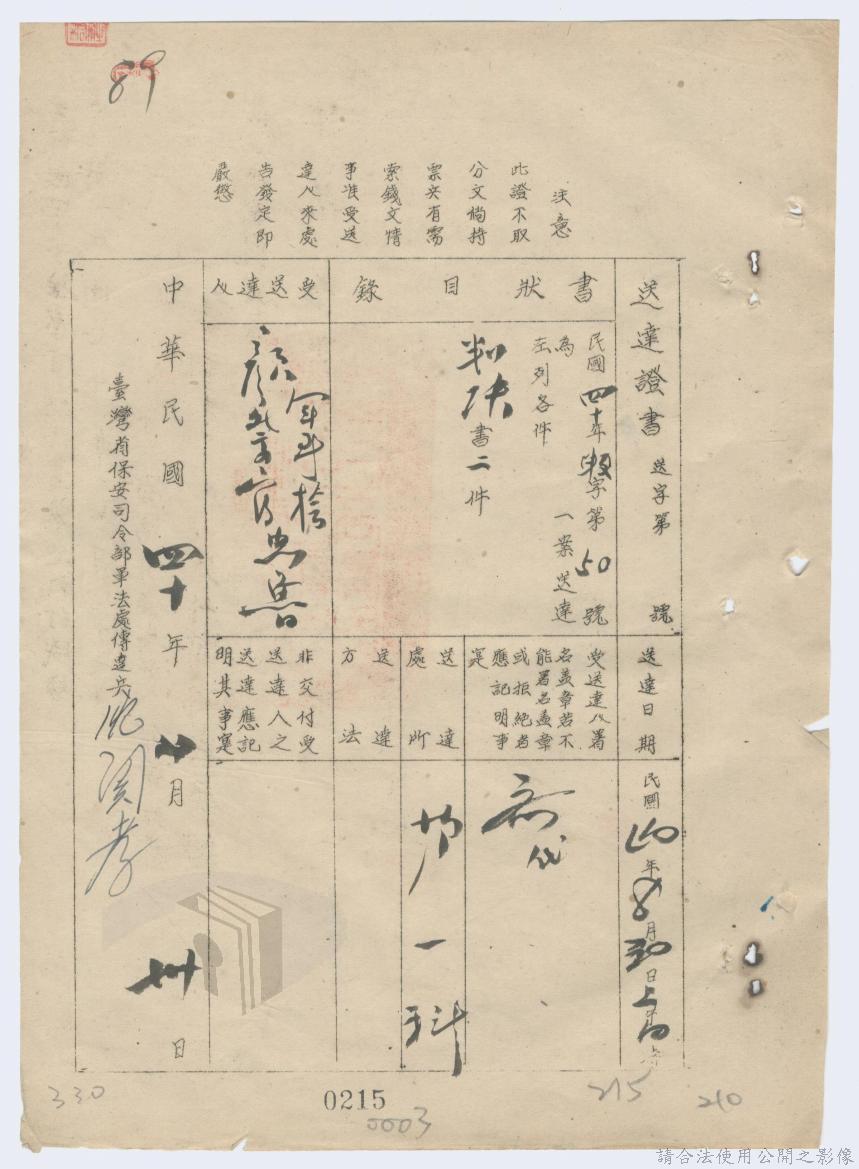 89
注意
此證不取
分文倘持
票兵有需
索錢文情
事准受送
達人來處
告發定即
嚴懲
送達證書 送字第 號
書狀目錄
民國四十年 字第50號
為 一案送達
左列各件
判決書二件
受送達人
送達日期
民國40年8月30日上 10時
受送達人署
名蓋章若不
能署名蓋章
或拒絕者
應記明事
實
代
送達
處所
第一科
送達
方法
非交付受
送達人之
送達應記
明其事實
中華民國四十年 月卅日
臺灣省保安司令部軍法處傳達兵
330
0215
0003
215
210
請合法使用公開之影像